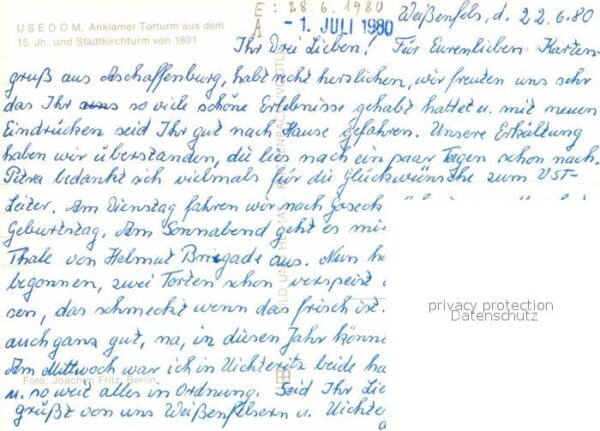 E: 28.6.1980
A: - 1. JULI 1980
USEDOM, Anklamer Torturm aus dem
15. Jh. und Stadtkirchturm von 1691
Weißenfels, d. 22.6.80
Ihr Drei Lieben! Für Euren lieben Karten-
gruß aus Aschaffenburg, habt recht herzlichen, wir freuten uns sehr
das Ihr uns so viele schöne Erlebnisse gehabt hattet u. mit neuen
Eindrücken seid Ihr gut nach Hause gefahren. Unsere Erkältung
haben wir überstanden, die lies nach ein paar Tagen schon nach.
Petra bedankt sich vielmals für die Glückwünsche zum VST-
Leiter. Am Dienstag fahren wir nach Goseck
Geburtstag. Am Sonnabend geht es mi
Thale von Helmut Brigade aus. Nun h
begonnen, zwei Torten schon verspeist
sen, das schmeckt wenn das frisch ist.
auch ganz gut, na, in diesen Jahr könn
Am Mittwoch war ich in Uichteritz beide ha
u. so weit alles in Ordnung. Seid Ihr Lie
grüßt von uns Weißenfelsern u. Uichte
Foto: Joachim Fritz, Berlin
privacy protection
Datenschutz